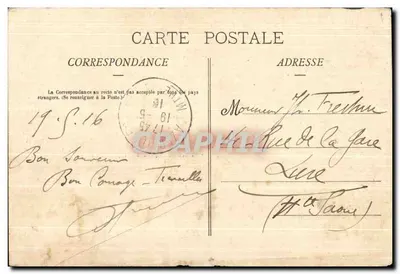 CARTE POSTALE
CORRESPONDANCE
ADRESSE
La Correspondance au verso n'est pas acceptée par tous les pays
étrangers. (Se renseigner à la Poste.)
19.5.16
Bon Souvenir
Bon Courage - Travaillez
Monsieur
Rue de la Gare
Lure
(Hte Saone)
CPAPHIL